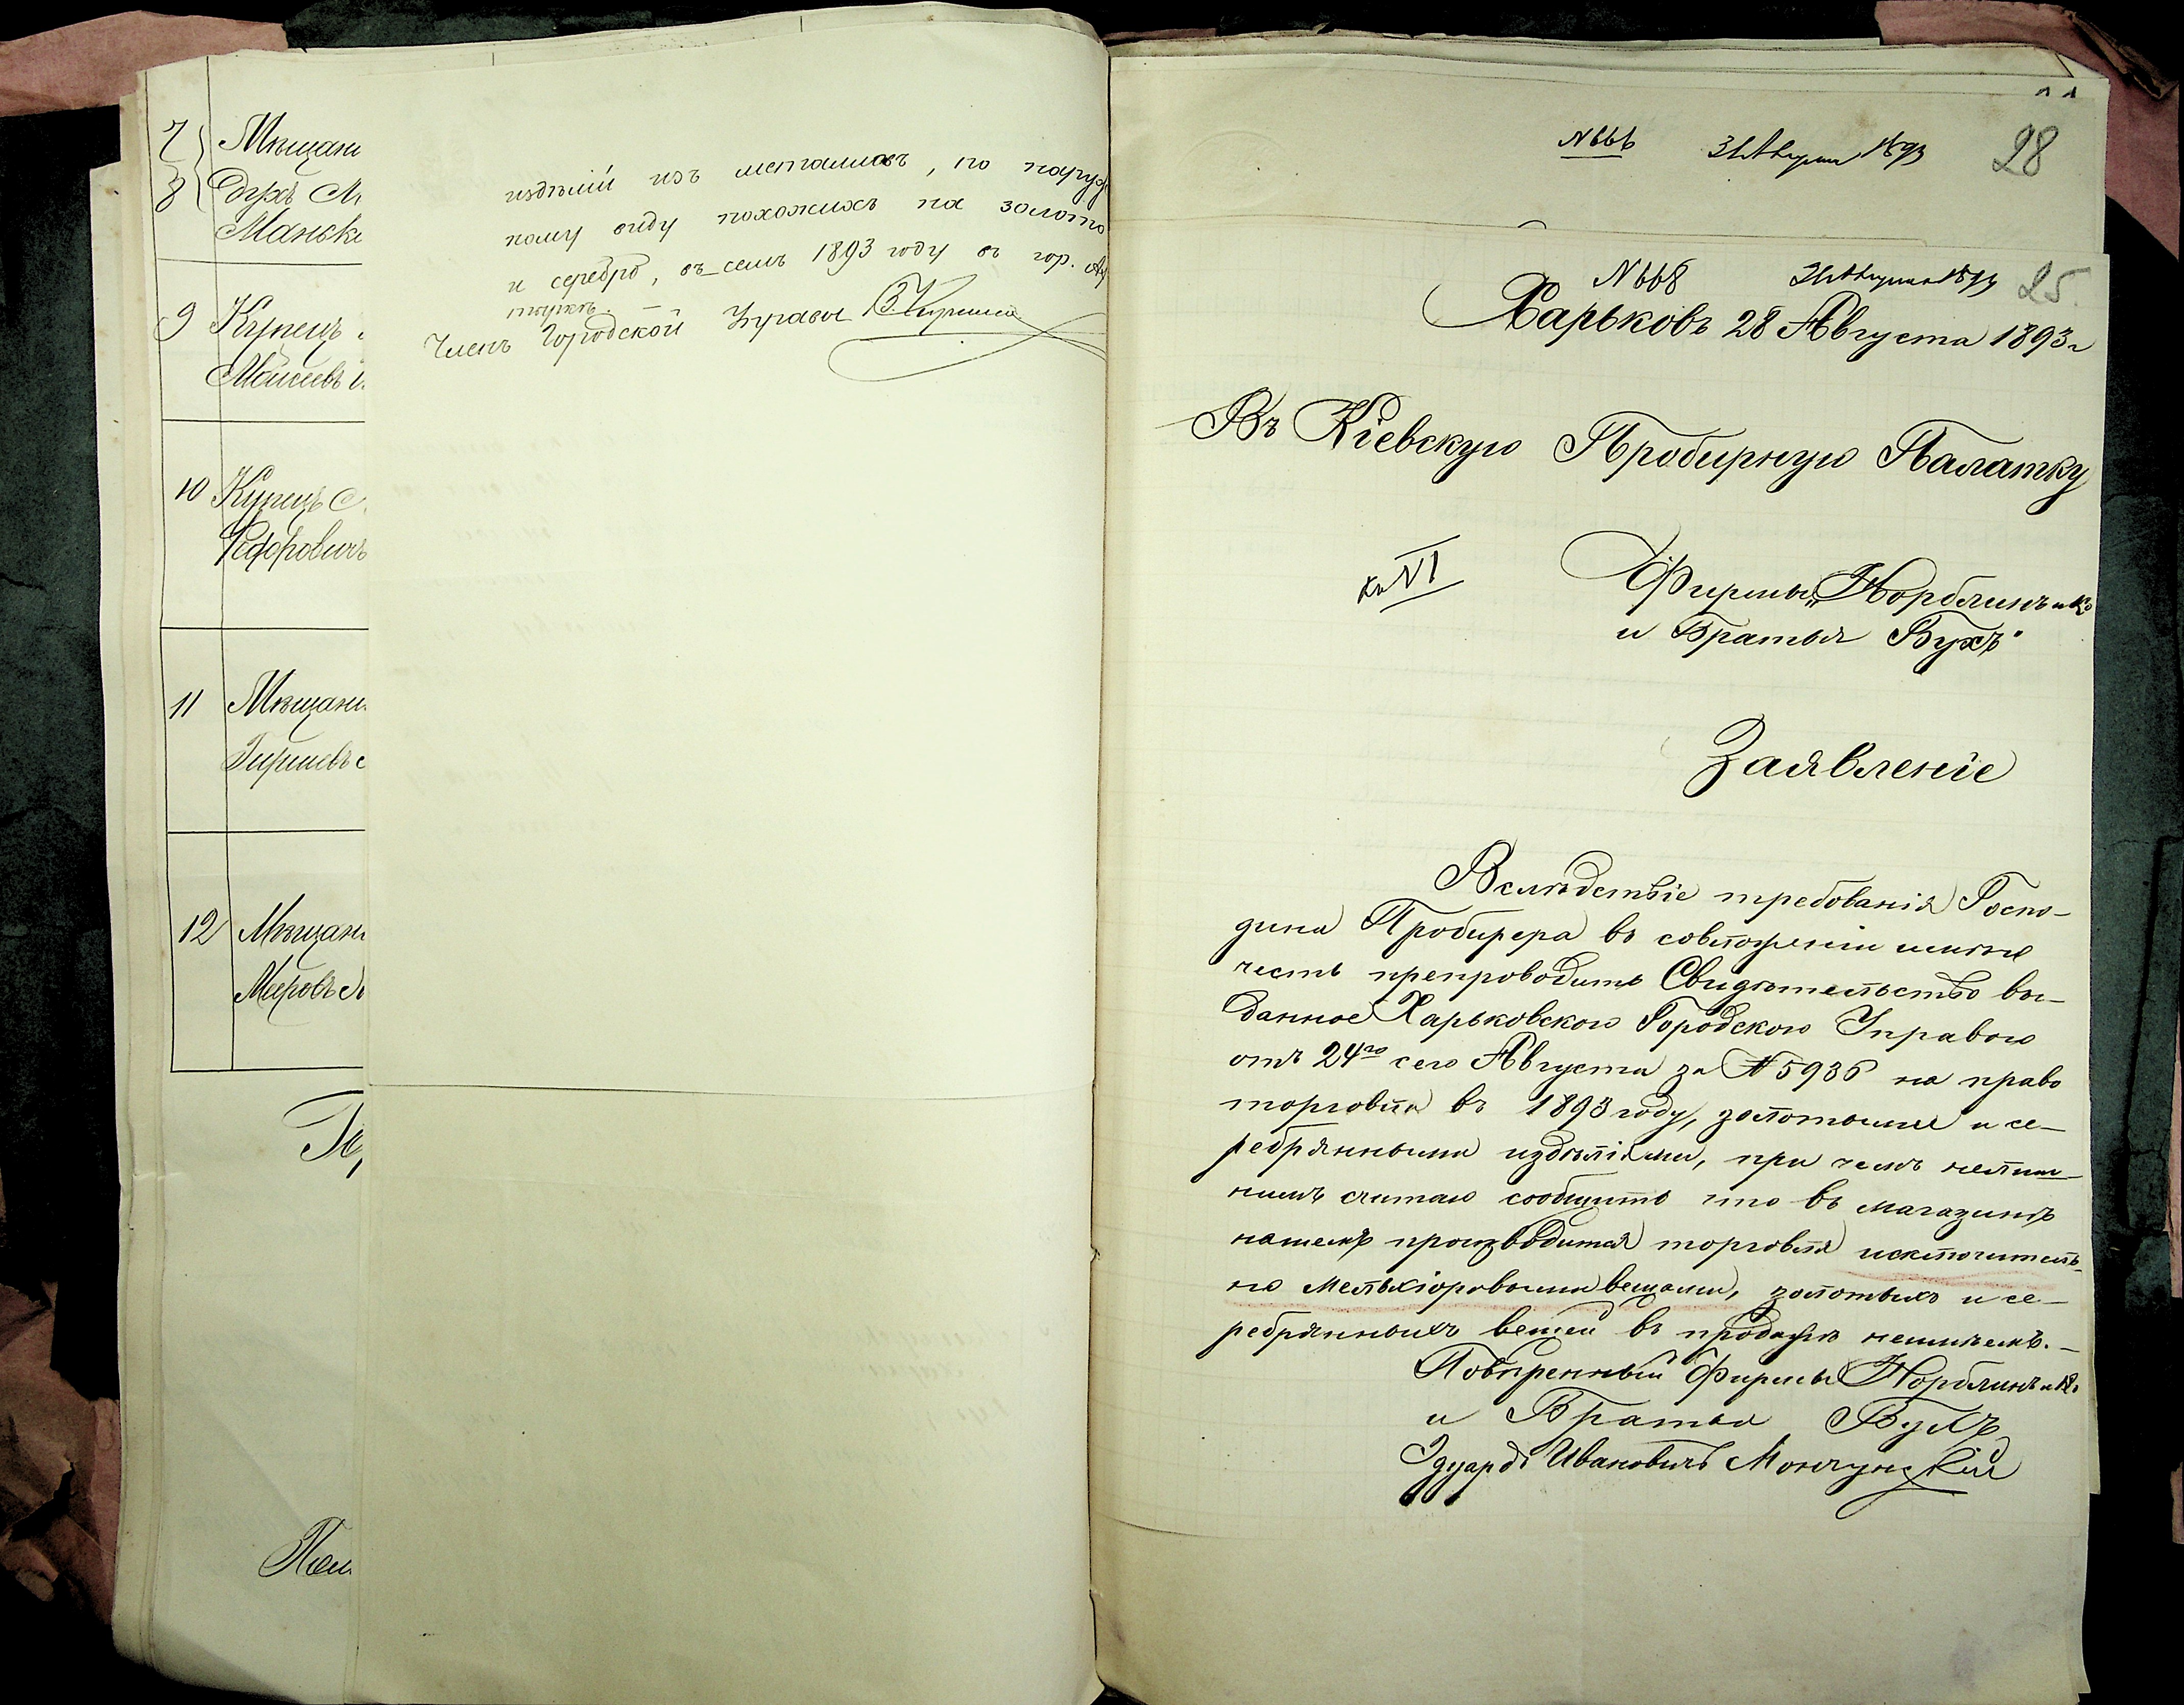 7 Мѣщани
8 Духъ
Маньк
9 Купецъ
Моисеевъ
10 Купецъ С
11 Мѣщани
Гиршевъ
12 Мѣщани
Мееровъ
издѣлій изъ металловъ, по наруж
ному виду похожихъ на золото
и серебро, въ семъ 1893 году въ гор.
Членъ Городской Управы
№ 666 31 Августа 1893 28
№ 668 31 Августа 1893 25
Харьковъ 28 Августа 1893 г
Въ Кіевскую Пробирную Палатку
Фирмы „Норблинъ и Ко
и Братья Бухъ"
Заявленіе
Вслѣдствіе требованія Госпо-
дина Пробирера въ имѣю
честь препроводить Свидѣтельство вы-
данное Харьковскою Городскою Управою
отъ 24го сего Августа за № 5936 на право
торговли въ 1893 году, золотыми и се-
ребрянными издѣліями, при чемъ нелиш-
нимъ считаю сообщить что въ магазинѣ
нашемъ производится торговля исключитель-
но мельхіоровыми вещами, золотыхъ и се-
ребрянныхъ вещей въ продажѣ неимѣемъ.-
Повѣренный Фирмы Норблинъ и Ко
и Братья Бухъ
Эдуардъ Ивановичъ